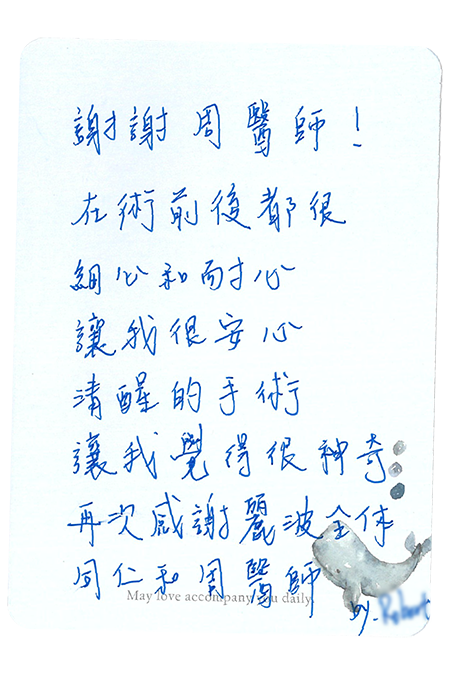 謝謝周醫師！
在術前後都很
細心和耐心
讓我很安心
清醒的手術
讓我覺得很神奇
再次感謝麗波全体
同仁和周醫師
May love accompany you daily.
by.